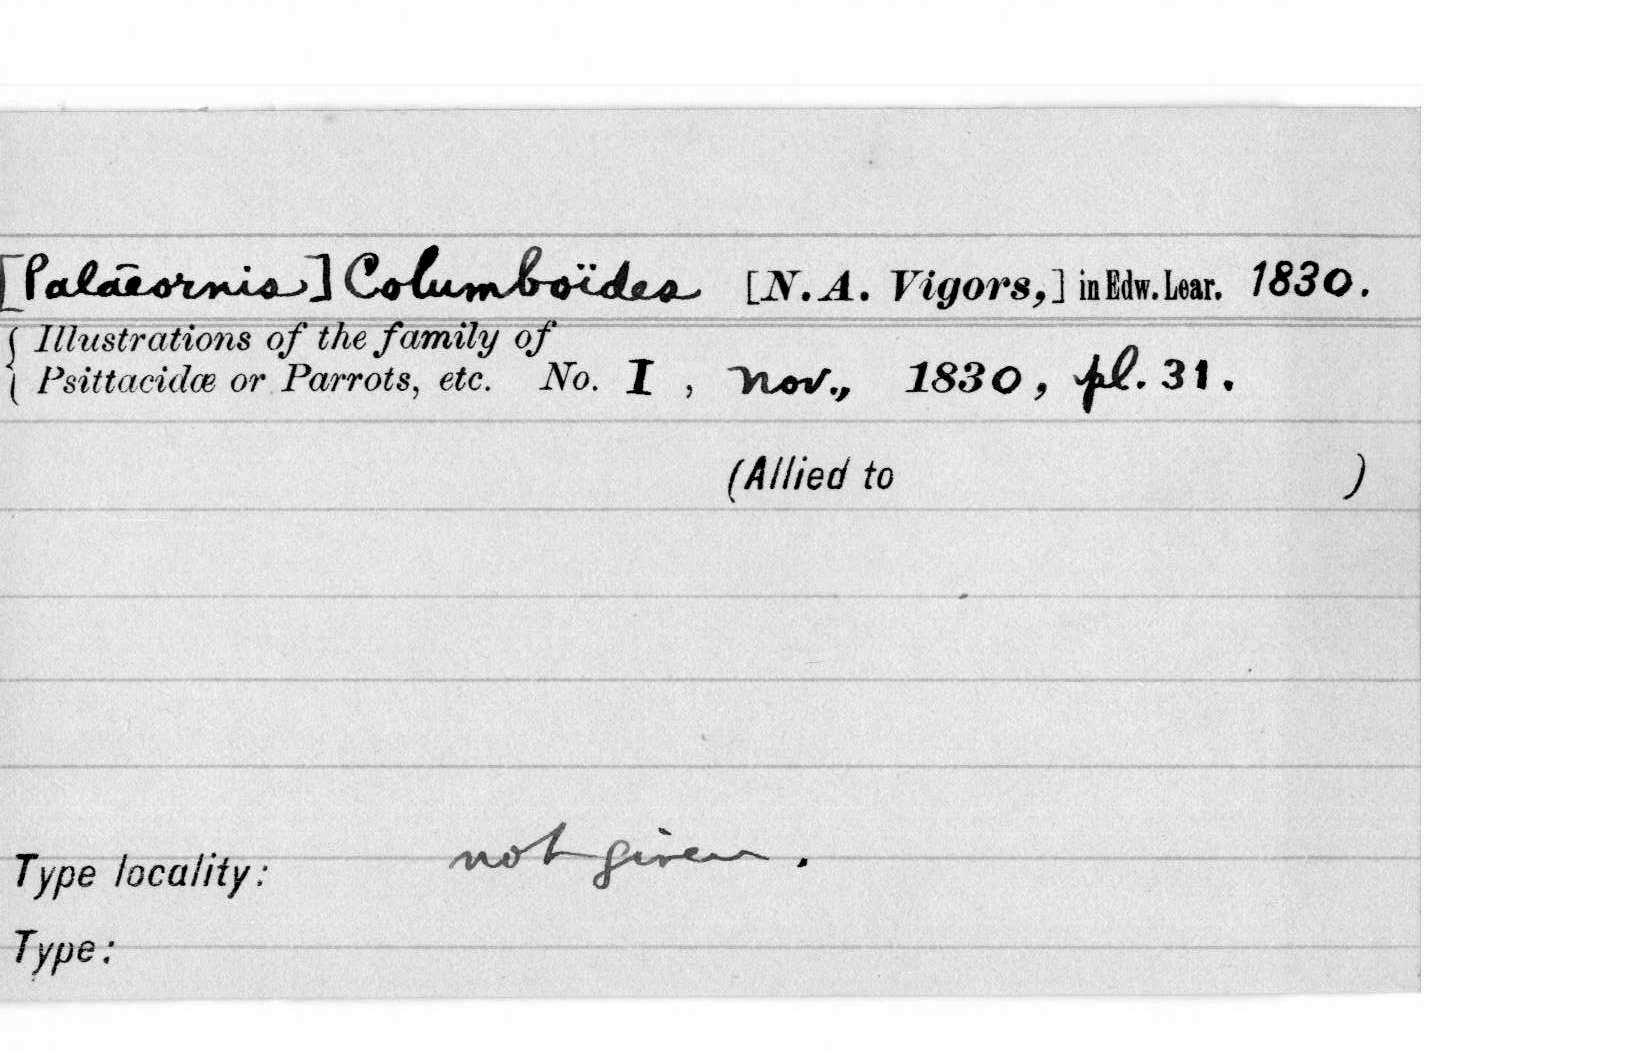 [Palāeornis] Columboïdes [N. A. Vigors,] in Edw. Lear. 1830.
Illustrations of the family of
Psittacidæ or Parrots, etc. No. I, Nov., 1830, pl. 31.
(Allied to )
Type locality: not given.
Type: